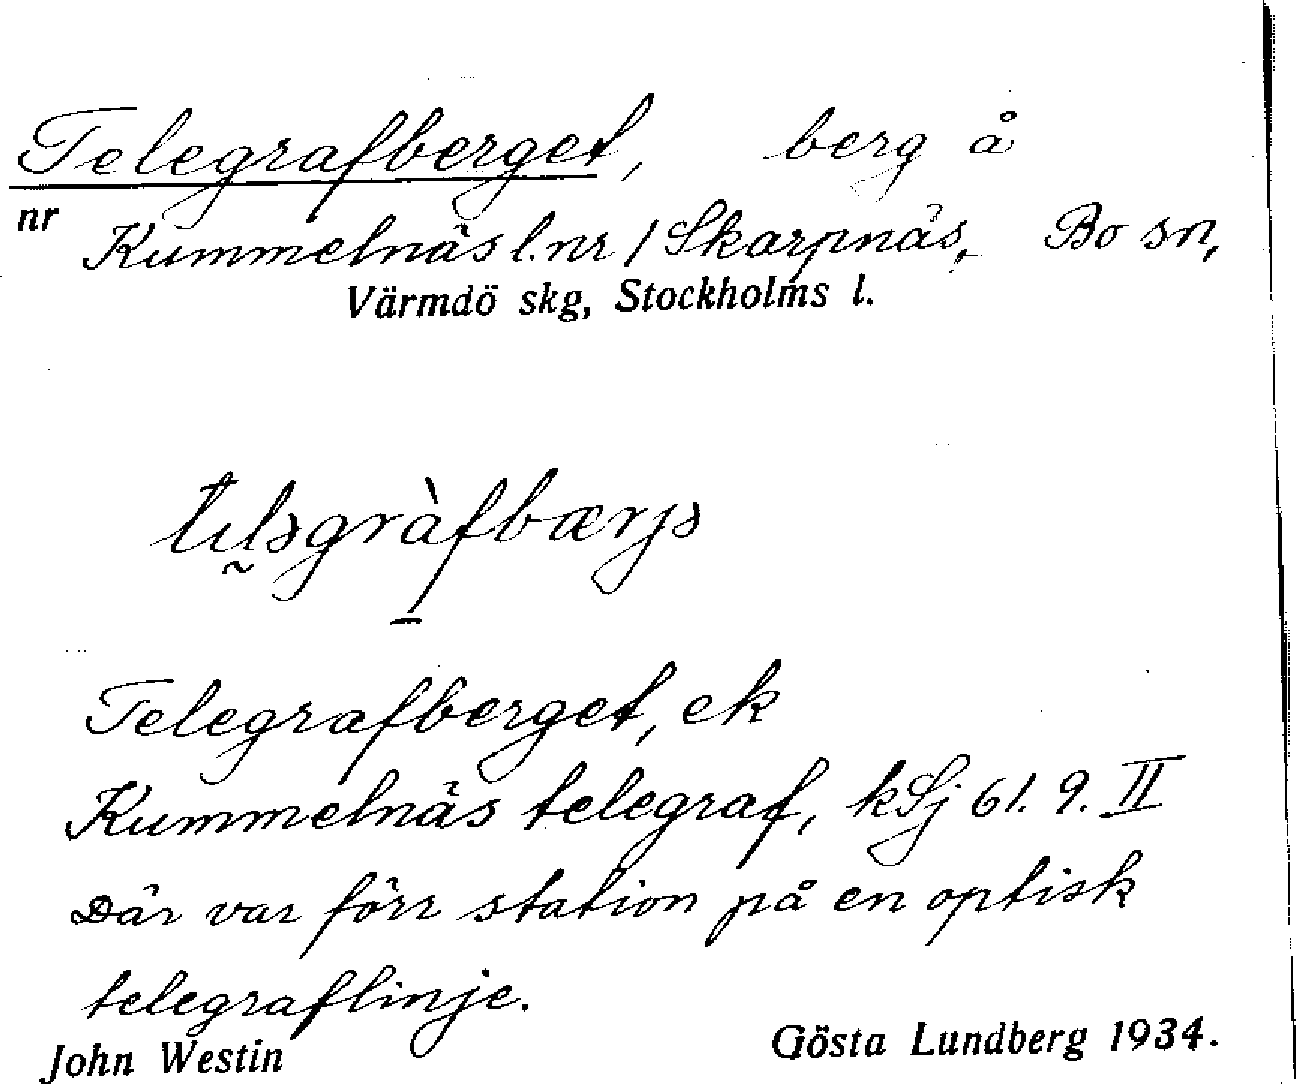 Telegrafberget, berg å
nr Kummelnäs l.nr 1 Skarpnäs, Bo sn,
Värmdö skg, Stockholms l.
Telegrafberget, ek
Kummelnäs telegraf, kSj 61. 9. II
Där var förr station på en optisk
telegraflinje.
John Westin Gösta Lundberg 1934.